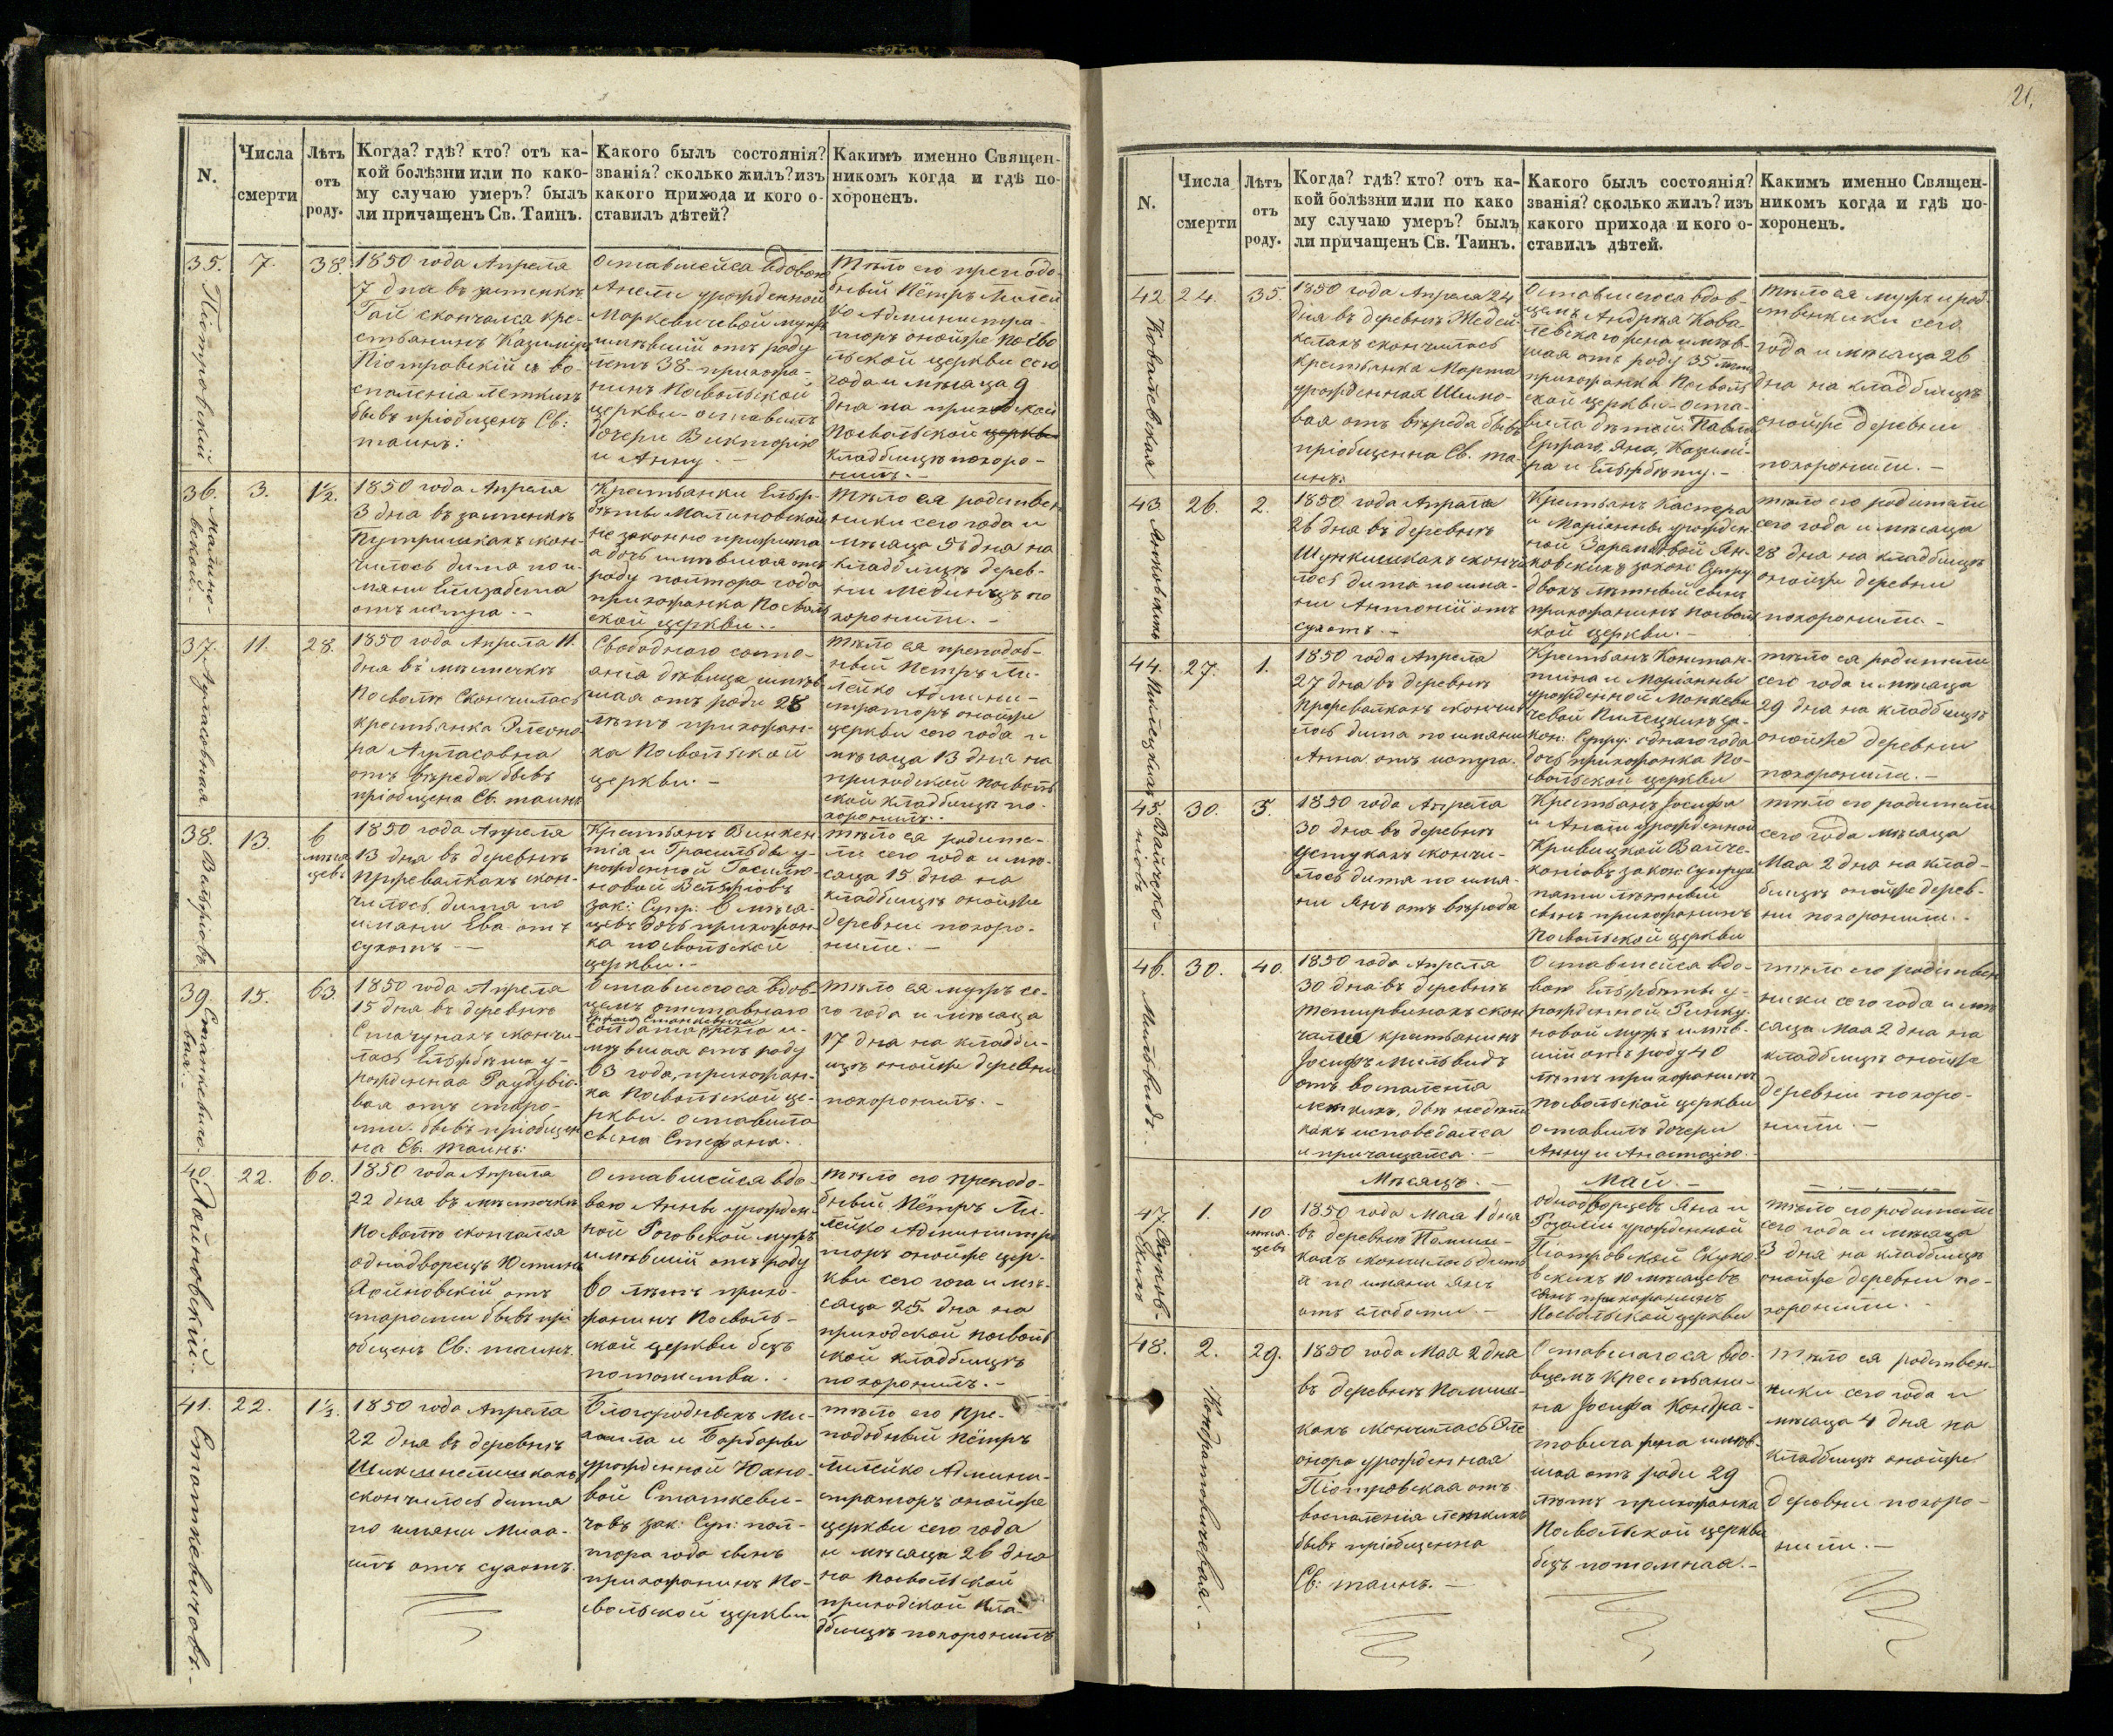 N.
Числа
смерти
Лѣтъ
отъ
роду.
Когда? гдѣ? кто? отъ ка-
кой болѣзни или по како-
му случаю умеръ? былъ
ли причащенъ Св. Таинъ.
Какого былъ состоянія?
званія? сколько жилъ? изъ
какого прихода и кого о-
ставилъ дѣтей?
Какимъ именно Священ-
никомъ когда и гдѣ по-
хороненъ.
35.
Піотровскій
7.
38.
1850 года Апреля
7 дня въ застенкѣ
Гай скончался кре-
стьянинъ Казимиръ
Піотровскій съ во-
спаленія легкихъ
бывъ пріобщенъ Св:
таинъ:
Оставшейся вдовою
Анели урожденной
Маркевичевой мужъ
имѣвшій отъ роду
летъ 38 прихожа-
нинъ Посвольской
церкви оставилъ
дочери Викторію
и Анну. –
Тѣло его преподо
бный Пётръ Лилей
ко Администра-
торъ онойже Посво
льской церкви сего
года и мѣсяца 9
дня на приходской
Посвольской церкви
кладбищѣ похоро-
нилъ. –
36.
Малино-
вской.
3.
1½.
1850 года Апреля
3 дня въ застенкѣ
Путришкахъ скон-
чилось дитя по и-
мяни Елизабета
отъ испуга. –
Крестьянки Ельж-
бѣты Малиновской
не законно прижита
а дочь имѣвшая отъ
роду полтора года
прихожанка Посволь
ской церкви. –
Тѣло ея родствен
ники сего года и
мѣсяца 5 дня на
кладбищѣ дерев-
ни Медин по
хоронили. –
37.
11.
28.
1850 года Апреля 11.
дня въ мѣстечкѣ
Посволѣ скончилась
крестьянка Элеоно
ра Ауласовна
отъ вѣреда бывъ
пріобщена Св. таинъ
Свободнаго состо-
янія дѣвица имѣв
шая отъ роду 28
лѣтъ прихожан-
ка Посвольской
церкви. –
Тѣло ея преподоб-
ный Петръ Ли-
лейко Админи-
страторъ онойже
церкви сего года и
мѣсяца 13 дня на
приходской Посволь
ской кладбищѣ по-
хоронилъ. –
38.
Вильжіовъ
13.
6
мѣся
цевъ
1850 года Апреля
13 дня въ деревнѣ
Пржевалкахъ скон-
чилось дитя по
имяни Ева отъ
сухотъ –
Крестьянъ Викен
тія и Грасильды у-
рожденной
новой Вельжіовъ
зак: Супр: 6 мѣся-
цевъ дочь прихожан
ка посвольской
церкви. –
Тѣло ея родите-
ли сего года и мѣ-
сяца 15 дня на
кладбищѣ онойже
деревни похоро-
нили. –
39.
Станкевичо-
вая. –
15.
63.
1850 года Апреля
15 дня въ деревнѣ
Стачунахъ скончи-
лась Ельжбѣта у-
рожденная Раудзвіо
вая отъ старо-
сти бывъ пріобщен
на Св. таинъ:
Оставшегося вдов-
цемъ отставнаго
Станкевича
солдата жена и-
мѣвшая отъ роду
63 года, прихожан-
ка Посвольской це-
ркви оставила
сына Стефана.
Тѣло ея мужъ се-
го года и мѣсяца
17 дня на кладби-
щѣ онойже деревни
похоронилъ. –
40.
Дойновскій. –
22.
60.
1850 года Апреля
22 дня въ мѣстечкѣ
Посволѣ скончался
однадворецъ Юстинъ
Дойновскій отъ
старости бывъ прі
общенъ Св: таинъ.
Оставшейся вдо-
вою Анны урожден
ной Роговской мужъ
имѣвшій отъ роду
60 лѣтъ прихо-
жанинъ Посволь-
ской церкви безъ
потомства. –
Тѣло его преподо-
бный Пётръ Ли-
лейко Администра
торъ онойже цер-
кви сего года и мѣ-
сяца 25 дня на
приходской посволь
ской кладбищѣ
похоронилъ. –
41.
Статкевичовъ. –
22.
1½.
1850 года Апреля
22 дня въ деревнѣ
скончилось дитя
по имяни Миха-
илъ отъ сухотъ.
Благородныхъ Ми-
хаила и Барбары
урожденной Юхно-
вой Статкеви-
човъ зак: Суп: пол-
тора года сынъ
прихожанинъ По-
свольской церкви
Тѣло его Пре-
подобный Пётръ
Лилейко Админи-
страторъ онойже
церкви сего года
и мѣсяца 26 дня
на посвольской
приходской кла-
дбищѣ похоронилъ
21.
N.
Числа
смерти
Лѣтъ
отъ
роду.
Когда? гдѣ? кто? отъ ка-
кой болѣзни или по како
му случаю умеръ? былъ
ли причащенъ Св. Таинъ.
Какого былъ состоянія?
званія? сколько жилъ? изъ
какого прихода и кого о-
ставилъ дѣтей.
Какимъ именно Священ-
никомъ когда и гдѣ по-
хороненъ.
42
Ковалевская
24.
35.
1850 года Апреля 24
дня въ деревнѣ Жедей-
келахъ скончилась
крестьянка Марта
урожденная Шимо-
вая отъ вѣреда бывъ
пріобщенна Св. та-
инъ:
Оставшегося вдов-
цемъ Андрѣя Кова
левскаго жена имѣв-
шая отъ роду 35 лѣтъ
прихожанка Посволь
ской церкви – оста-
вила дѣтей: Павла
Ержаго, Яна, Казими-
ра и Ельжбѣту. –
Тѣло ея мужъ и род-
ственники сего
года и мѣсяца 26
дня на кладбищѣ
онойже деревни
похоронили. –
43
Янковскихъ
26.
2.
1850 года Апреля
26 дня въ деревнѣ
Шункишкахъ скончи
лось дитя по имя-
ни Антоній отъ
сухотъ. –
Крестьянъ Каспера
и Маріянны урожден
ной Зарембовой Ян-
ковскихъ закон: Супру
двохъ лѣтный сынъ
прихожанинъ Посволь
ской церкви. –
Тѣло его родители
сего года и мѣсяца
28 дня на кладбищѣ
онойже деревни
похоронили –
44.
Пилецкихъ
27.
1.
1850 года Апреля
27 дня въ деревнѣ
Пржевалкахъ скончи
лось дитя по имяни
Анна отъ испуга.
Крестьянъ Констан-
тина и Маріянны
урожденной Монкеви
чевой Пилецкихъ за-
кон: Супру: однаго года
дочь прихожанка По-
свольской церкви
Тѣло ея родители
сего года и мѣсяца
29 дня на кладбищѣ
онойже деревни
похоронили. –
45.
Вайчко-
ніовъ
30.
5.
1850 года Апреля
30 дня въ деревнѣ
Устукахъ скончи-
лось дитя по имя-
ни Янъ отъ вѣреда
Крестьянъ Іосифа
и Анели урожденной
Кривицкой Вайче-
коніовъ закон: Супруг
пяти лѣтный
сынъ прихожанинъ
Посвольской церкви
Тѣло его родители
сего года мѣсяца
Мая 2 дня на клад-
бищѣ онойже дерев-
ни похоронили. –
46.
Мильвидъ. –
30.
40.
1850 года Апреля
30 дня въ деревнѣ
Тетирвинахъ скон
чался крестьянинъ
Іосифъ Мильвидъ
отъ воспаленія
легкихъ, двѣ недѣли
какъ исповедался
и причащался. –
Оставшейся вдо-
вою Ельжбѣты у-
рожденной Ринку-
новой мужъ имѣв-
шій отъ роду 40
лѣтъ прихожанинъ
Посвольской церкви
оставилъ дочери
Анну и Анастазію. –
Тѣло его родствен
ники сего года и мѣ
сяца Мая 2 дня на
кладбищѣ онойже
деревни похоро-
нили. –
Мѣсяцъ. – Май. –
47.
1.
10
мѣся-
цевъ
1850 года Мая 1 дня
въ деревнѣ Помиш-
кахъ скончилось дит
я по имяни Янъ
отъ слабости. –
однодворцевъ Яна и
Розаліи урожденной
Піотровской Скуко
вскихъ 10 мѣсяцевъ
сынъ прихожанинъ
Посвольской церкви
Тѣло его родители
сего года и мѣсяца
3 дня на кладбищѣ
онойже деревни по-
хоронили. –
48.
Кондратовичовая. –
2.
29.
1850 года Мая 2 дня
въ деревнѣ Помиш-
кахъ скончилась Эле
онора урожденная
Піотровская отъ
воспаленія легкихъ
бывъ пріобщенна
Св: таинъ. –
Оставшагося вдо-
вцемъ крестьяни-
на Іосифа Кондра-
товича жена имѣв-
шая отъ роду 29
лѣтъ прихожанка
Посвольской церкви
безъ потомная. –
Тѣло ея родствен-
ники сего года и
мѣсяца 4 дня на
кладбищѣ онойже
деревни похоро-
нили. –